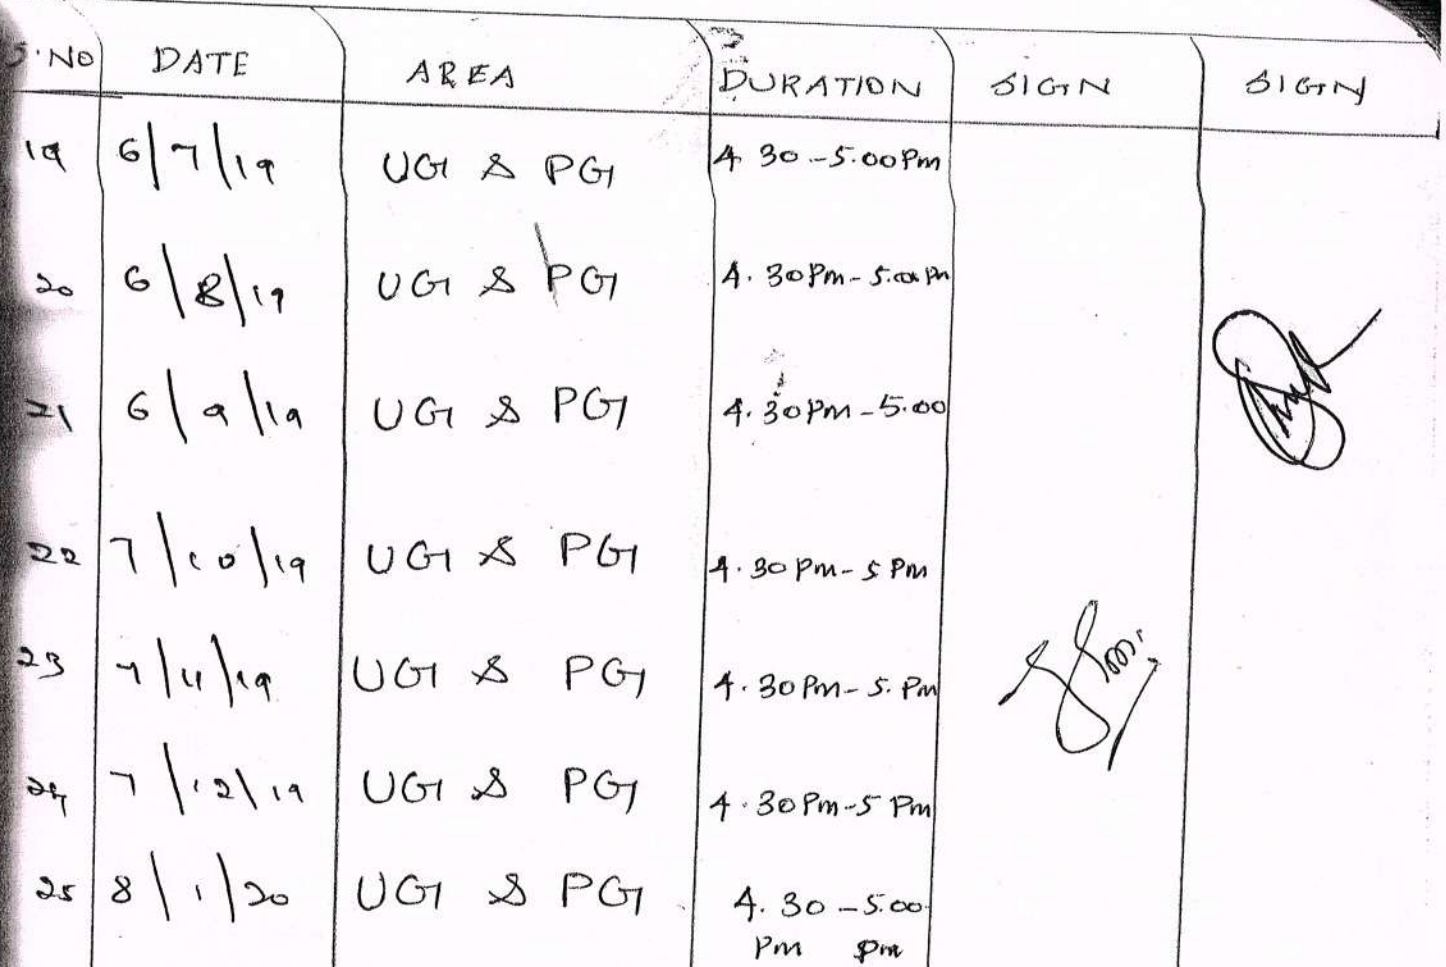 S.NO DATE AREA DURATION SIGN SIGN
19 6/7/19 UG & PG 4.30 - 5.00 Pm
20 6/8/19 UG & PG 4.30 Pm - 5.00 Pm
21 6/9/19 UG & PG 4.30 Pm - 5.00
22 7/10/19 UG & PG 4.30 Pm - 5 Pm
23 7/11/19 UG & PG 4.30 Pm - 5. Pm
24 7/12/19 UG & PG 4.30 Pm - 5 Pm
25 8/1/20 UG & PG 4.30 - 5.00
Pm Pm